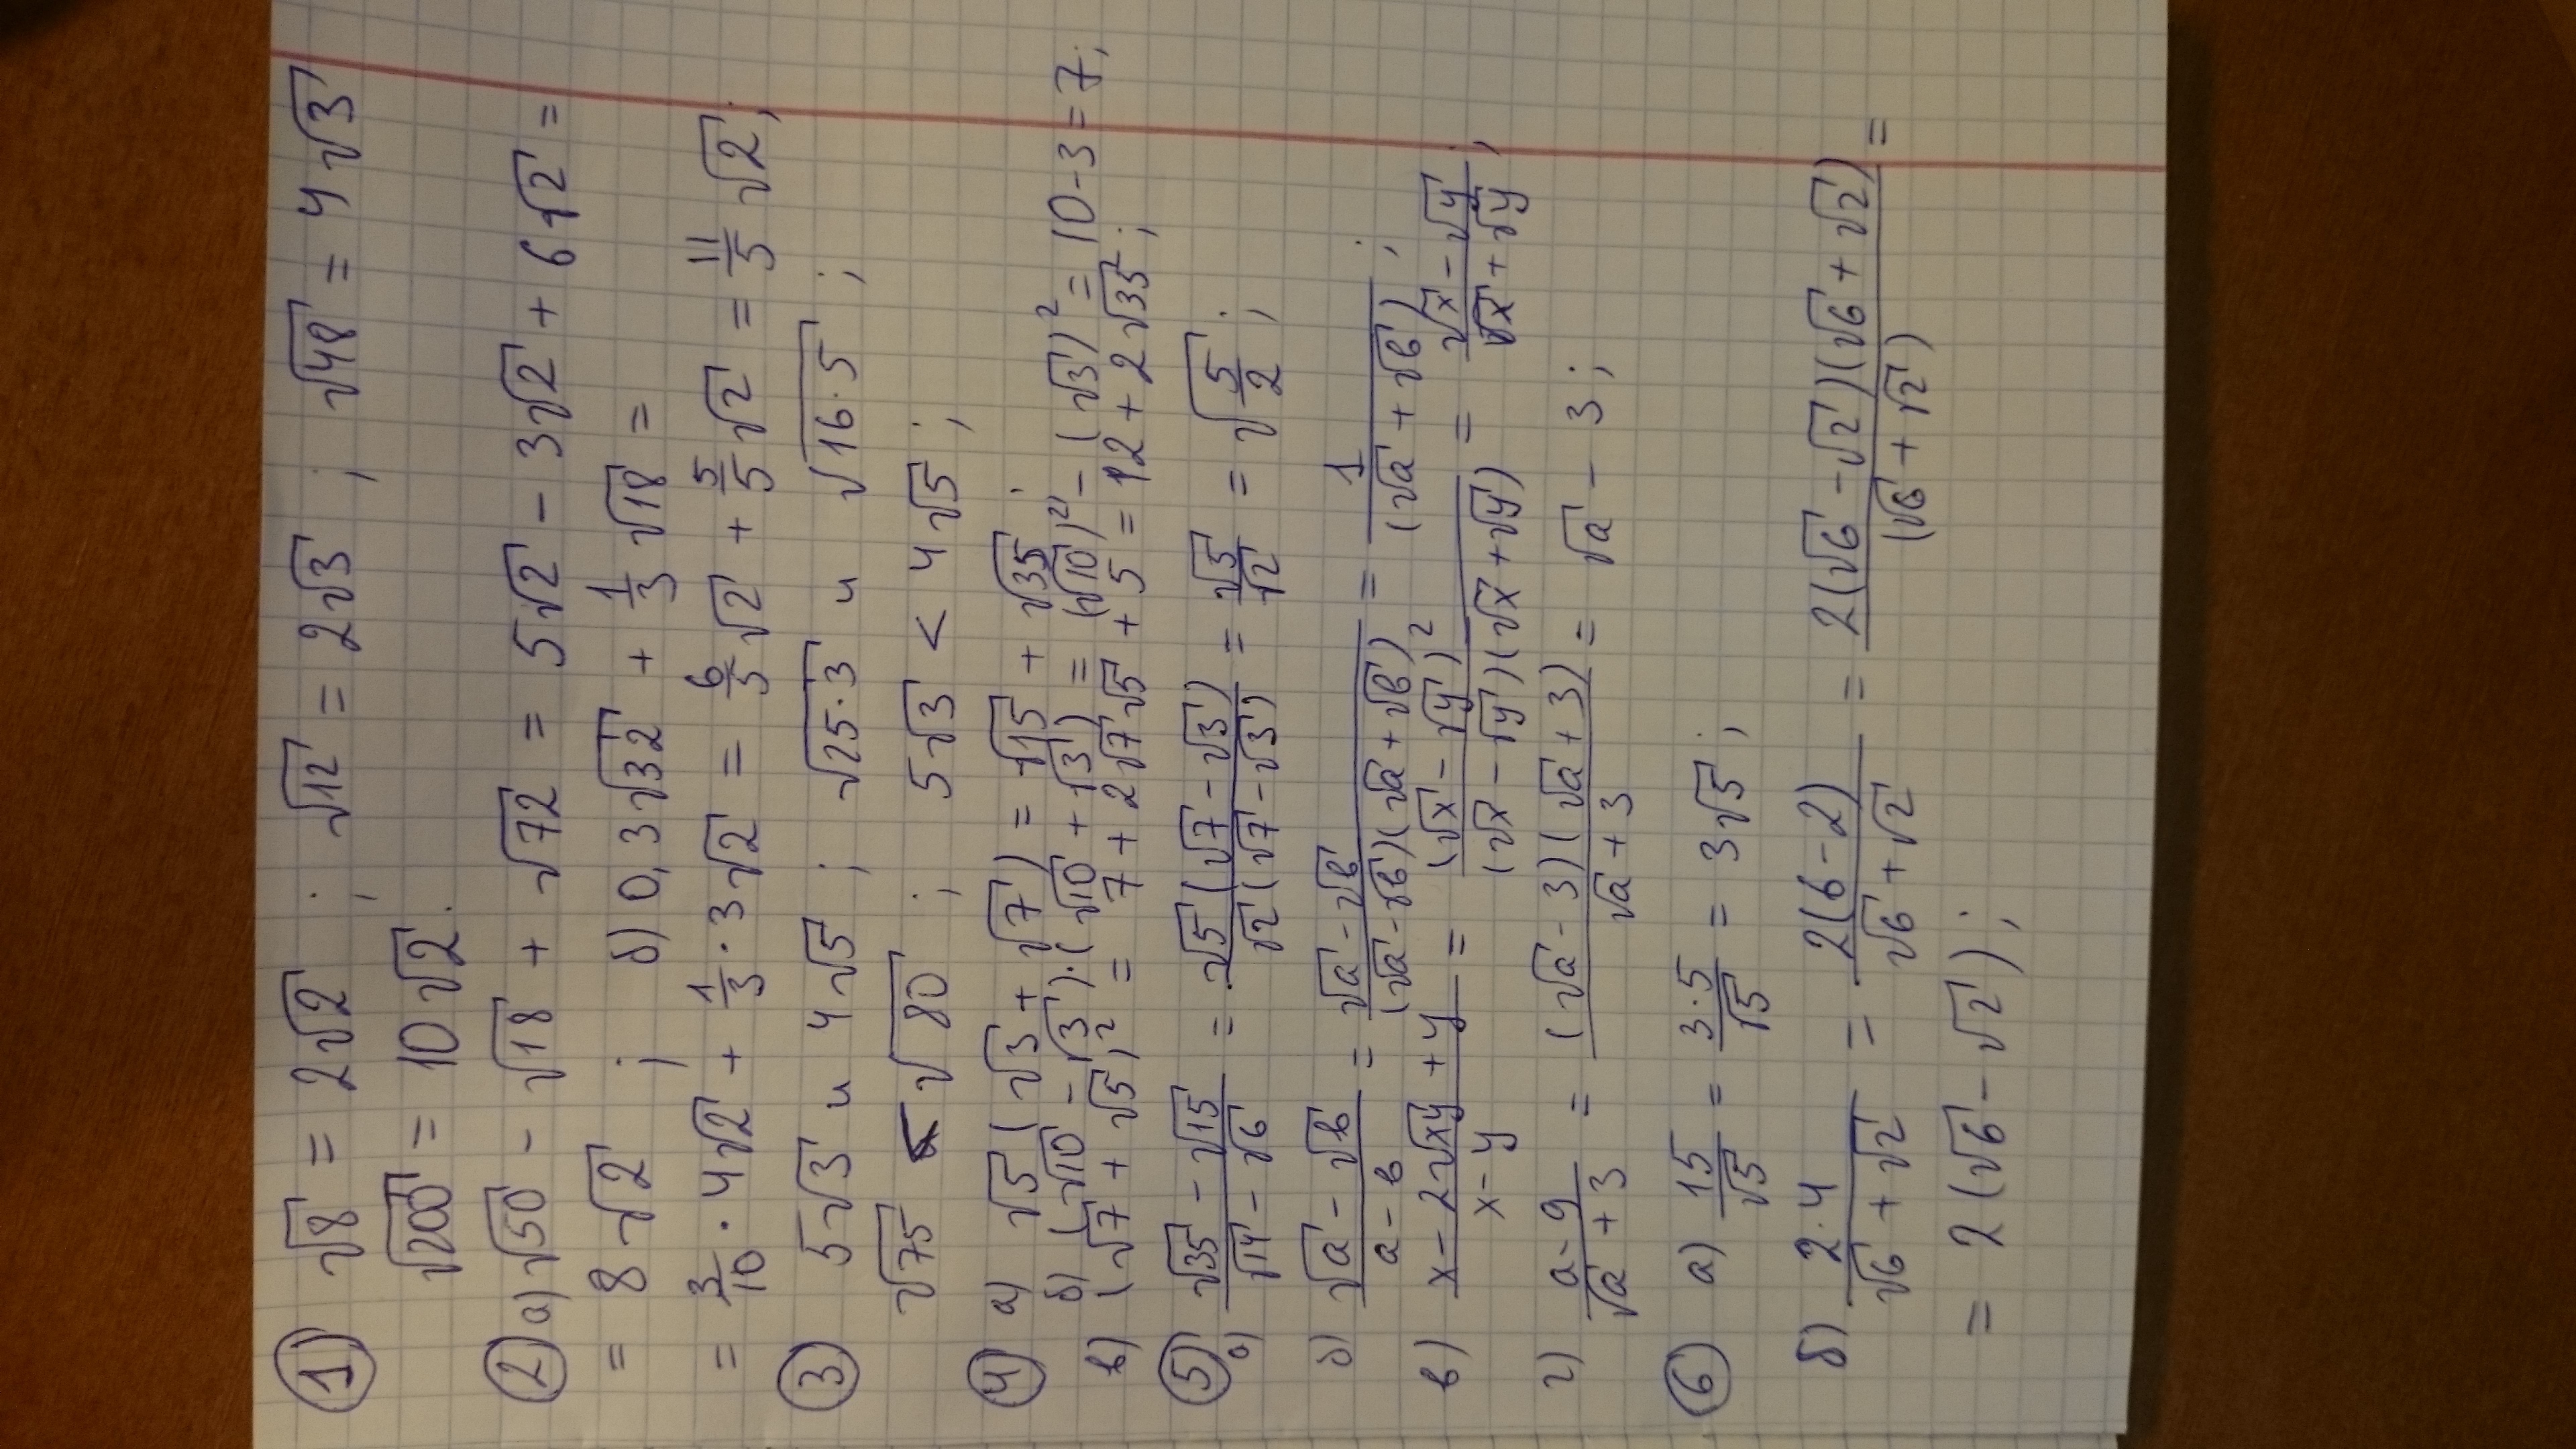 1) √8 = 2√2 ; √12 = 2√3 ; √48 = 4√3
√200 = 10√2.
2) а) √50 - √18 + √72 = 5√2 - 3√2 + 6√2 =
= 8√2 ; б) 0,3√32 + 1/3 √18 =
= 3/10 · 4√2 + 1/3 · 3√2 = 6/5 √2 + 5/5 √2 = 11/5 √2 ;
3) 5√3 и 4√5 ; √25·3 и √16·5 ;
√75 < √80 ; 5√3 < 4√5 ;
4) а) √5 (√3 + √7) = √15 + √35 ;
б) (√10 - √3)·(√10 + √3) = (√10)² - (√3)² = 10 - 3 = 7;
в) (√7 + √5)² = 7 + 2√7√5 + 5 = 12 + 2√35 ;
5) а) (√35 - √15)/(√14 - √6) = √5(√7 - √3)/√2(√7 - √3) = √5/√2 = √5/2 ;
б) (√а - √в)/(а - в) = (√а - √в)/(√а - √в)(√а + √в) = 1/(√а + √в) ;
в) (x - 2√xy + y)/(x - y) = (√x - √y)²/(√x - √y)(√x + √y) = (√x - √y)/(√x + √y) ;
г) (а - 9)/(√а + 3) = (√а - 3)(√а + 3)/(√а + 3) = √а - 3 ;
6) а) 15/√5 = 3·5/√5 = 3√5 ;
б) 2·4/(√6 + √2) = 2(6 - 2)/(√6 + √2) = 2(√6 - √2)(√6 + √2)/(√6 + √2) =
= 2(√6 - √2) ;